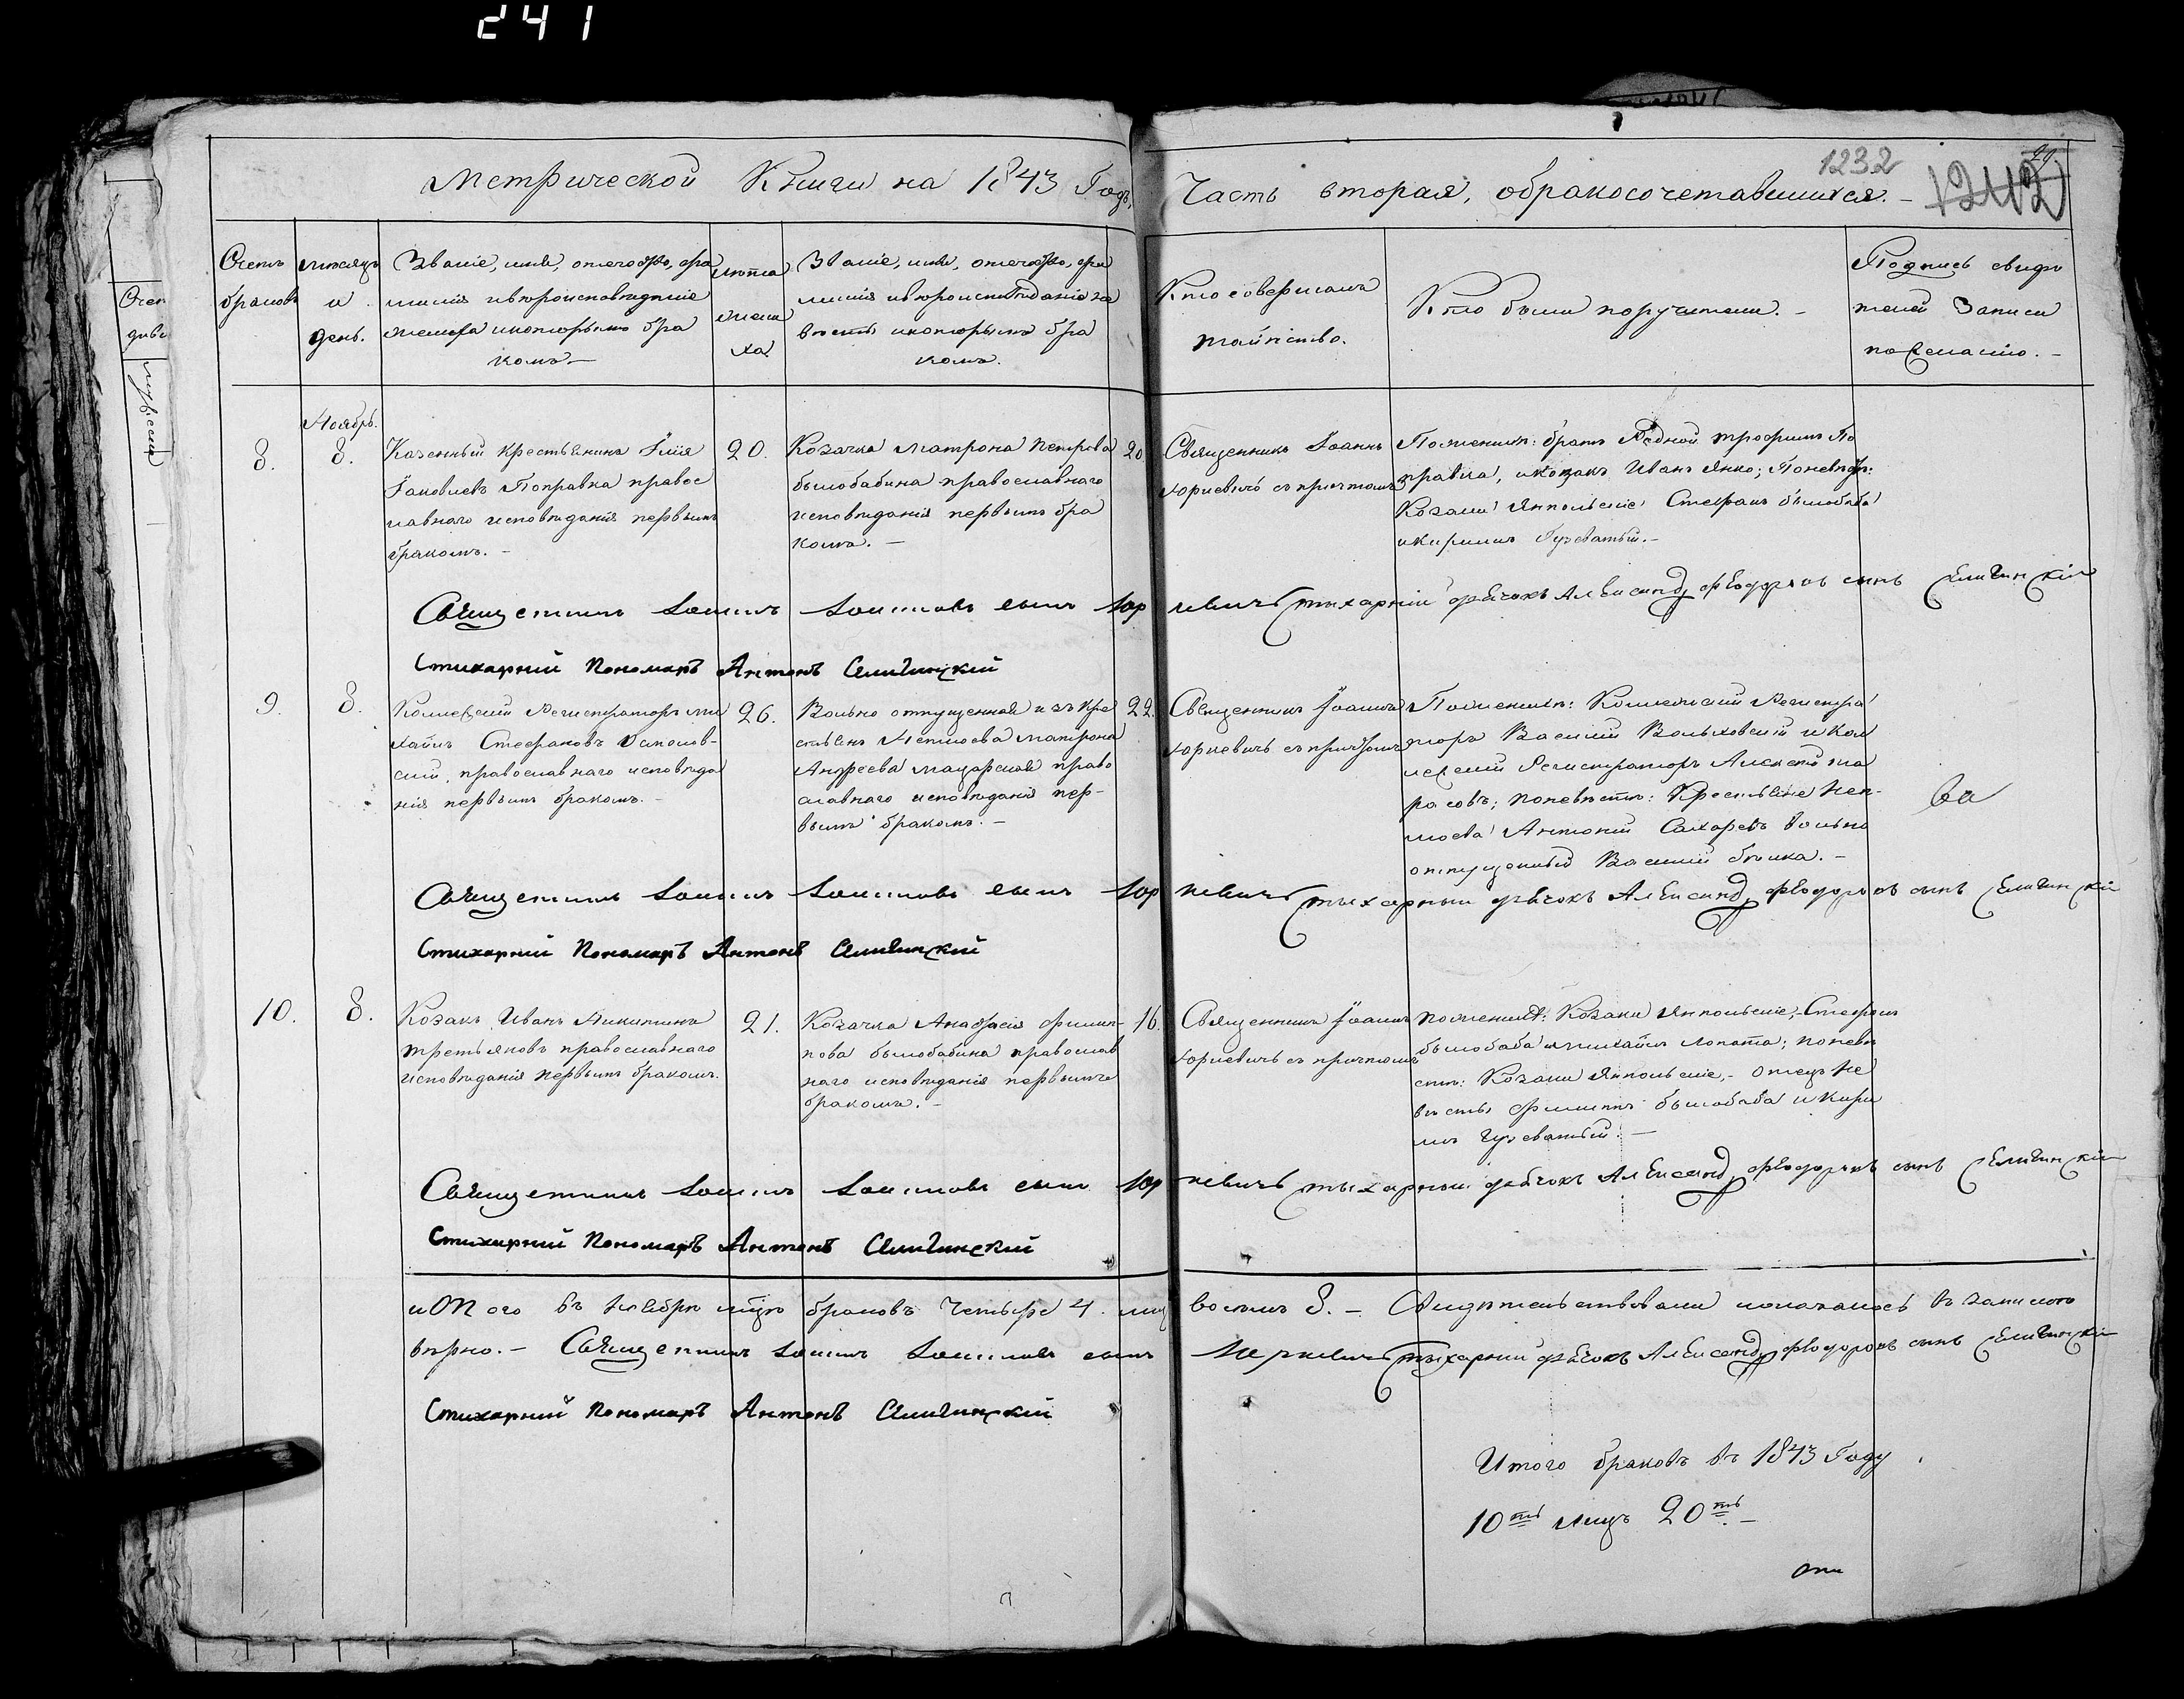 241
Метрической Книги на 1843 Годъ,
Часть вторая, обракосочетавшихся.-
1232
1242
Счетъ браковъ
Мѣсяцъ и день.
Званіе, имя, отечество, фа
милія ивѣроисповѣданіе
жениха икоторымъ бра
комъ.-
лѣта жени ха
Званіе, имя, отечество, фа
милія ивѣроисповѣданіе не
вѣсты икоторымъ бра
комъ.
Кто совершалъ
таинство.
Кто были поручители.-
Подпись свидѣ
телей Записи
пожеланію.-
Ноябрь.
8.
8.
Казенный крестьянинъ Илія
Іаковлевъ Поправка правос
лавнаго исповѣданія первымъ
бракомъ.-
20.
Козачка Матрона Петрова
былобабина православнаго
исповѣданія первымъ бра
комъ.-
20
Священникъ Іоаннъ
Юркевичъ съ причтомъ
Поженихѣ: братъ Родной Трофимъ По
правка, икозакъ Иванъ Янко; Поневѣс:
Козаки Ямпольскіе Стефанъ былобаба
икирилъ Гузеватый.-
Священникъ Іоаннъ Іоанновъ сынъ Юркевичъ
Стихарный дьячокъ Александръ Феодоровъ сынъ
Стихарний Пономаръ Антонъ
9.
8.
Коллежскій Регистраторъ ми
хаилъ Стефановъ
скій, православнаго исповѣда
нія первымъ бракомъ.-
26.
Вольно отпущенная изъ кре
стьянъ Неплюева Матрона
Андреева право
славнаго исповѣданія пер-
вымъ бракомъ.-
22.
Священникъ Іоаннъ
Юркевичъ съ причтомъ
Поженихѣ: Коллежскій Регистра
торъ Василій Вольховскій икол
лежскій Регистраторъ Алексѣй та
расовъ; поневѣстѣ: Крестьяне Неп-
люева Антоній вольно
отпущенный Василій
Священникъ Іоаннъ Іоанновъ сынъ Юркевичъ
Стихарный дьячокъ Александръ Феодоровъ сынъ
Стихарний Пономаръ Антонъ
10.
8.
Козакъ Иванъ Никитинъ
третьяковъ православнаго
исповѣданія первымъ бракомъ.
21.
Козачка Анастасія Филип-
пова былобабина православ
наго исповѣданія первымъ
бракомъ.-
16.
Священникъ Іоаннъ
Юркевичъ съ причтомъ
поженихѣ: Козаки Ямпольскіе, Стефанъ
былобаба имихаилъ Лопата; поневѣ
стѣ: Козаки Ямпольскіе,- отецъ не
вѣсты Филиппъ былобаба икири
лъ Гузеватый.-
Священникъ Іоаннъ Іоанновъ сынъ Юркевичъ
Стихарный дьячокъ Александръ Феодоровъ сынъ
Стихарний Пономаръ Антонъ
иТого въ Ноябрѣ мцѣ браковъ Четыре 4. лицъ восемь 8.- Свидѣтельствовали иоказалось въ запискѣ
вѣрно.- Священникъ Іоаннъ Іоанновъ сынъ Юркевичъ Стихарный дьячокъ Александръ Феодоровъ сынъ
Стихарний Пономаръ Антонъ
Итого браковъ въ 1843 Году
10ть лицъ 20ть.-